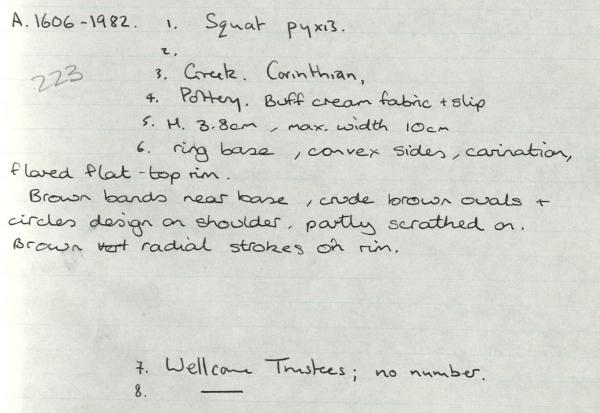 A.1606-1982. 1. Squat pyxis.
2.
223 3. Greek. Corinthian,
4. Pottery. Buff cream fabric + slip
5. H. 3.8cm, max. width 10cm
6. ring base, convex sides, carination,
flared flat-top rim.
Brown bands near base, crude brown ovals +
circles design on shoulder, partly scrathed on.
Brown vert radial strokes on rim.
7. Wellcome Trustees; no number.
8. —